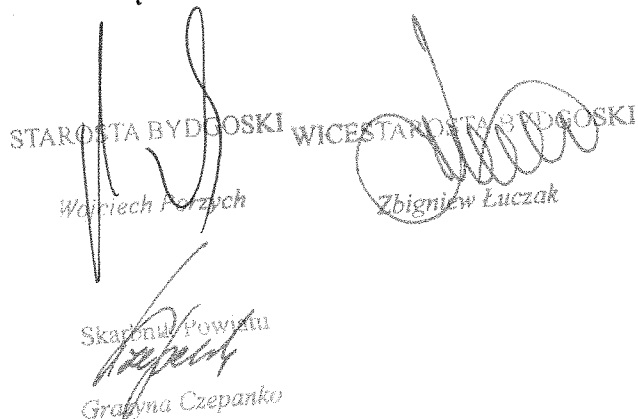 STAROSTA BYDGOSKI
Wojciech Porzych
WICESTAROSTA BYDGOSKI
Zbigniew Łuczak
Skarbnik Powiatu
Grażyna Czepanko